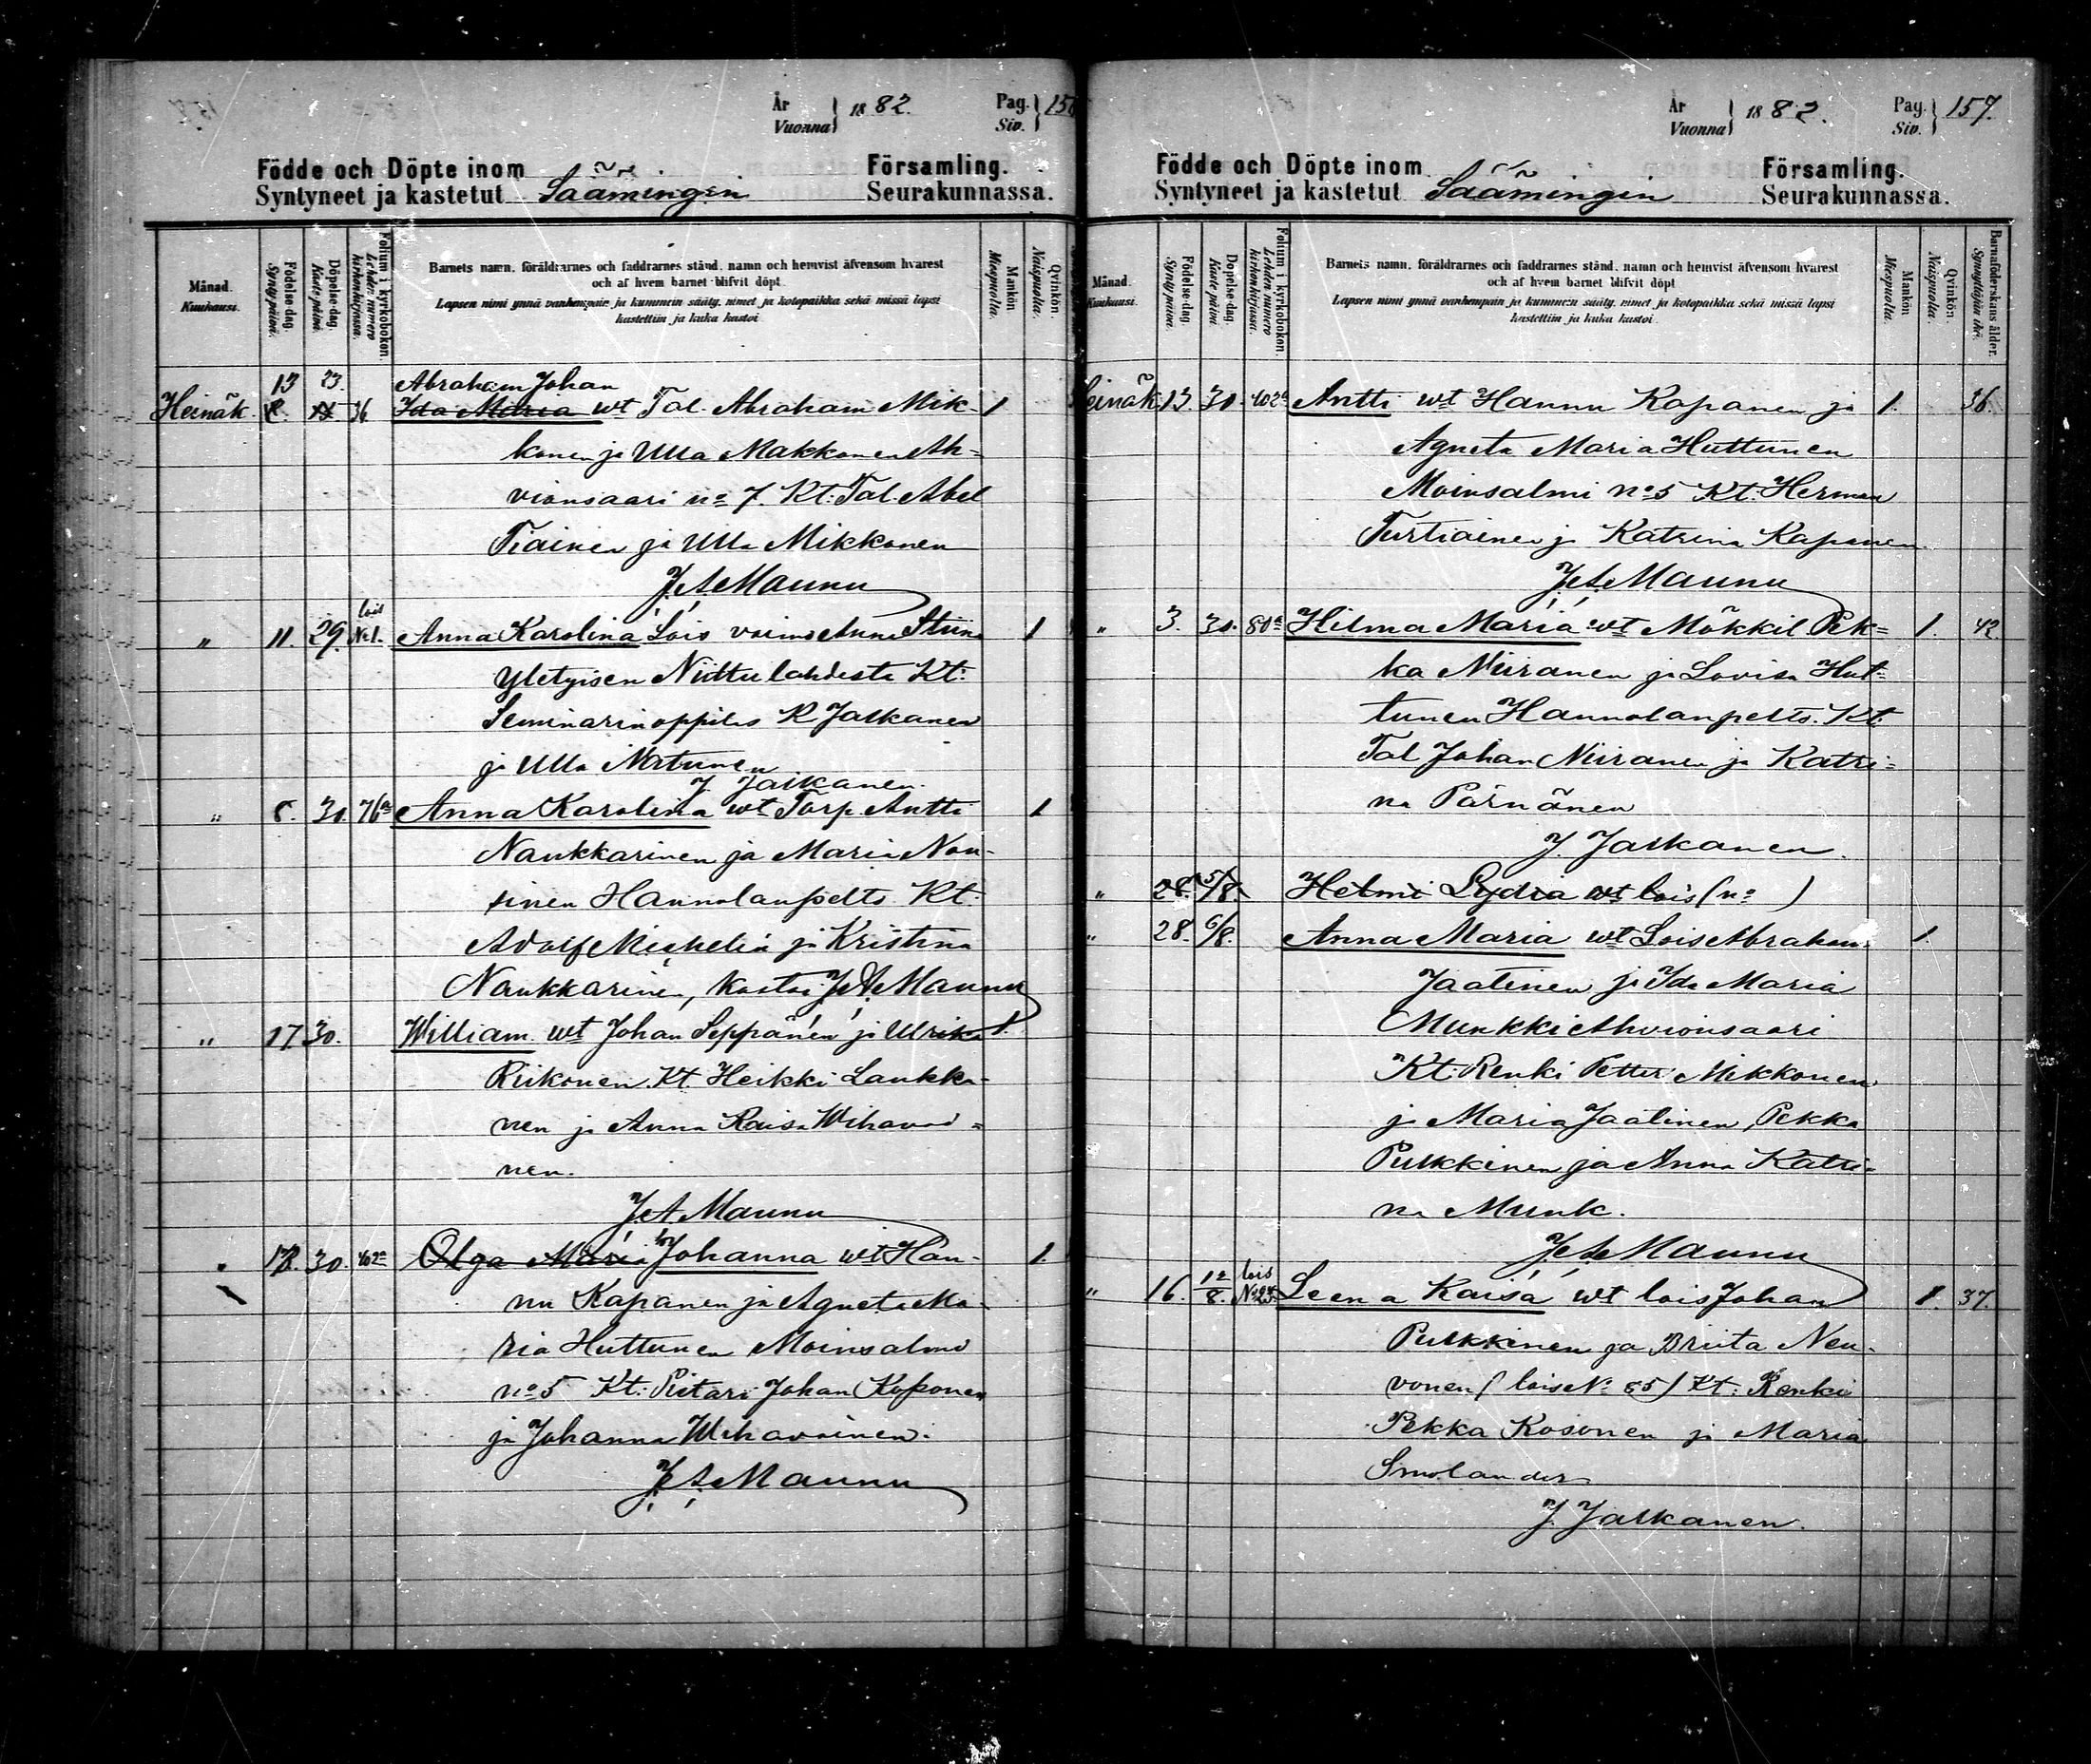 År
Vuonna
1882.
Pag.
Siv.
156
Födde och Döpte inom
Syntyneet ja kastetut Säämingin
Församling.
Seurakunnassa.
Månad.
Kuukausi.
Födelse-dag.
Synty päivä.
Döpelse-dag.
Kaste päivä.
Folium i kyrkoboken.
Lehden numero kirkonkirjassa.
Barnets namn, föräldrarnes och faddrarnes stånd, namn och hemvist äfvensom hvarest
och af hvem barnet blifvit döpt.
Lapsen nimi ynnä vanhempain ja kummein sääty, nimet ja kotopaikka sekä missä lapsi
kastettiin ja kuka kastoi.
Mankön
Miespuolia.
Qvinkön.
Naispuolia.
13 23. Abraham Johan
Heinäk. 36 Ida Maria wt Tal. Abraham Mik- 1
konen ja Ulla Makkonen Ah=
vionsaari no 7. Kt: Tal. Abel
Tiainen ja Ulla Mikkonen
J.A. Maunu
„ 11. 29. lois No 1. Anna Karolina Lois vaimo Anna Stiina 1
Yletyisen Niittulahdesta Kt:
Seminarinoppilas K Jalkanen
ja Ulla
J. Jalkanen.
„ 8. 30. 76a Anna Karolina wt Torp. Antti 1
Naukkarinen ja Maria Nou-
sinen Hannolanpelto Kt:
Adolf Michelin ja Kristina
Naukkarinen, kastoi J.A. Maunu
„ 17 30. William wt Johan Seppänen ja Ulrika 1.
Riikonen. Kt. Heikki Laukka-
nen ja Anna Kaisa Wihavai=
nen.
J.A. Maunu
„ 30. 402a Olga Maria Johanna wt Han- 1.
nu Kapanen ja Agneta Ma-
ria Huttunen Moinsalmi
no 5 Kt: Pietari Johan Koponen
ja Johanna Wihavainen.
J.A. Maunu
År
Vuonna
1882.
Pag.
Siv.
157.
Födde och Döpte inom
Syntyneet ja kastetut Säämingin
Församling.
Seurakunnassa.
Månad.
Kuukausi.
Födelse-dag.
Synty päivä.
Döpelse-dag.
Kaste päivä.
Folium i kyrkoboken.
Lehden numero kirkonkirjassa.
Barnets namn, föräldrarnes och faddrarnes stånd, namn och hemvist äfvensom hvarest
och af hvem barnet blifvit döpt
Lapsen nimi ynnä vanhempain ja kummein sääty, nimet ja kotopaikka sekä missä lapsi
kastettiin ja kuka kastoi.
Mankön
Miespuolia.
Qvinkön.
Naispuolia.
Barnaföderskans ålder.
Synnyttäjän ikä.
Heinäk 13 30. 402a Antti wt Hannu Kapanen ja 1. 36.
Agneta Maria Huttunen
Moinsalmi no 5 Kt: Herman
Turtiainen ja Katrina Kapanen.
J.A. Maunu
„ 3. 30. 80a Hilma Maria wt Mökkil Pek= 1. 42
ka Niiranen ja Lovisa Hut-
tunen Hannolanpelto. Kt:
Tal Johan Niiranen ja Katri=
na Pärnänen
J. Jalkanen.
„ 28. 5/8. Helmi Lydia wt lois (no )
„ 28. 6/8. Anna Maria wt Lois Abraham 1.
Jaatinen ja Ida Maria
Munkki Ahvionsaari
Kt: Renki Petter Mikkonen
ja Maria Jaatinen, Pekka
Pulkkinen ja Anna Katri-
na Munk.
J.A. Maunu
„ 16. 12/8. lois Leena Kaisa wt lois Johan 1. 37.
Pulkkinen ja Briita Neu-
vonen (lois No 85) Kt: Renki
Pekka Kosonen ja Maria
Smolander
J. Jalkanen.